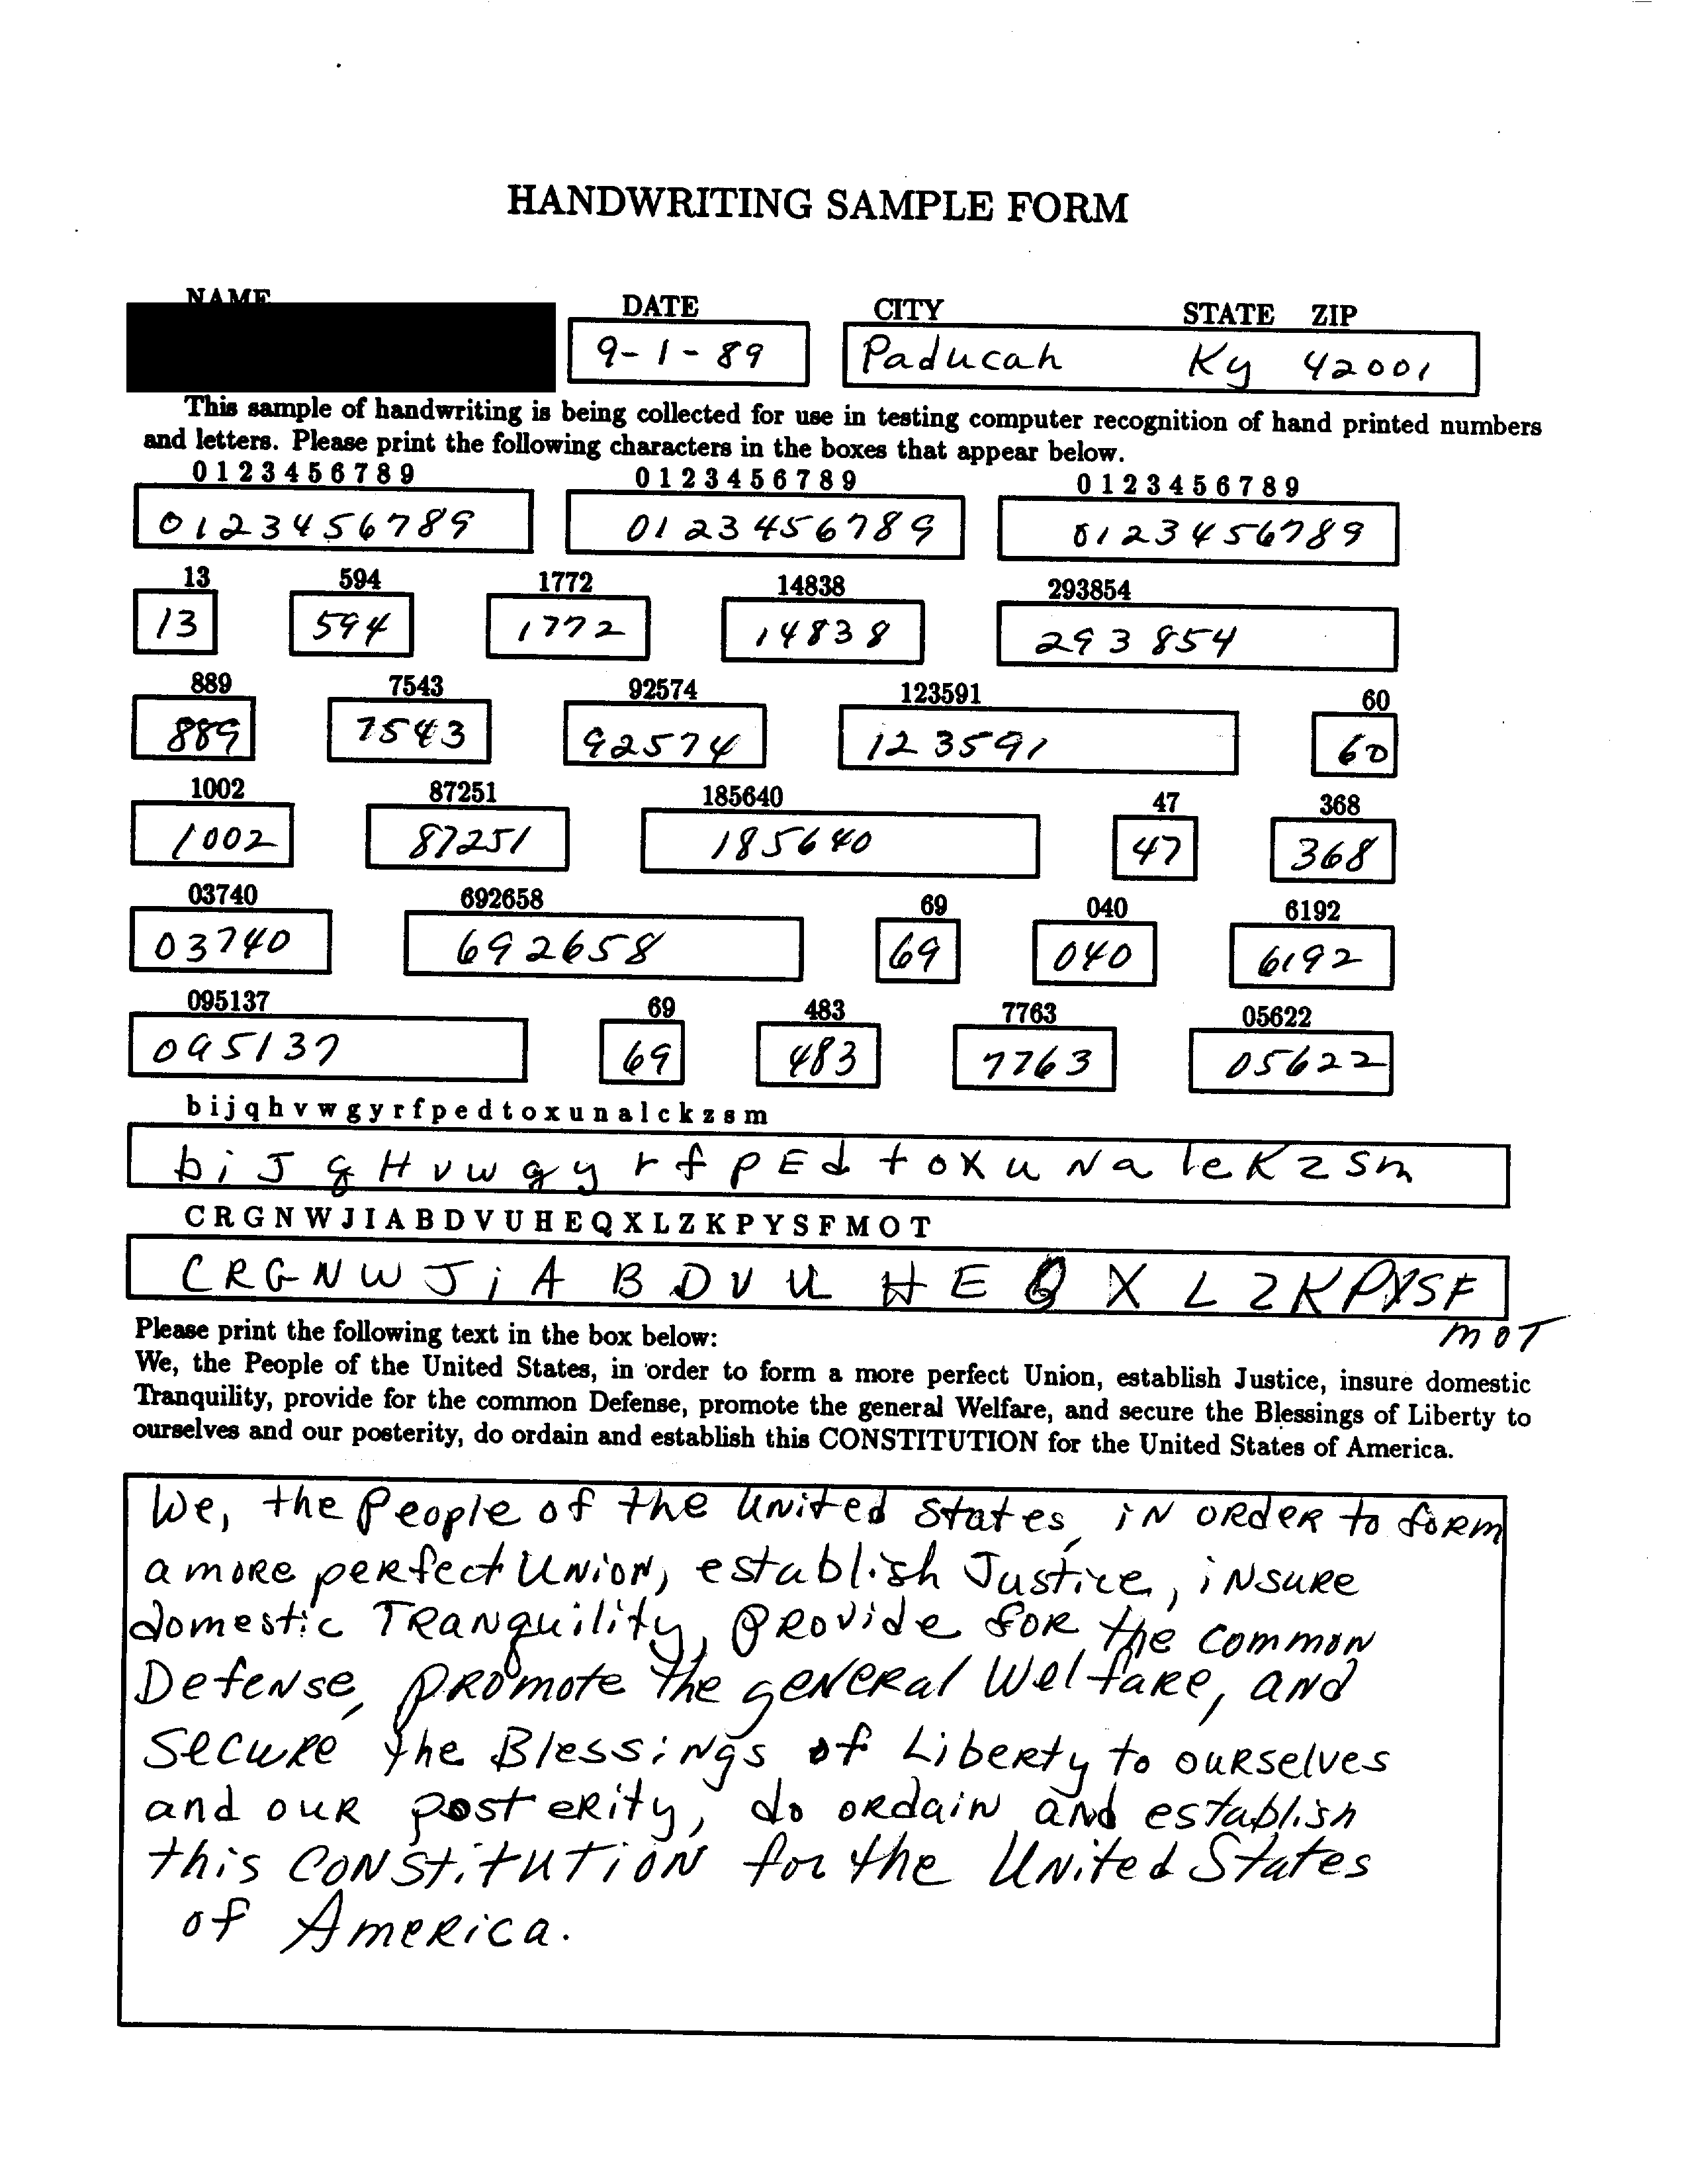 HANDWRITING SAMPLE FORM
NAME DATE CITY STATE ZIP
9-1-89 Paducah Ky 42001
This sample of handwriting is being collected for use in testing computer recognition of hand printed numbers
and letters. Please print the following characters in the boxes that appear below.
0 1 2 3 4 5 6 7 8 9 0 1 2 3 4 5 6 7 8 9 0 1 2 3 4 5 6 7 8 9
0123456789 0123456789 0123456789
13 594 1772 14838 293854
13 594 1772 14838 293854
889 7543 92574 123591 60
889 7543 92574 123591 60
1002 87251 185640 47 368
1002 87251 185640 47 368
03740 692658 69 040 6192
03740 692658 69 040 6192
095137 69 483 7763 05622
095137 69 483 7763 05622
b i j q h v w g y r f p e d t o x u n a l c k z s m
b i J q H v w g y r f p E d t o X u N a l e K z S m
C R G N W J I A B D V U H E Q X L Z K P Y S F M O T
C R G N W J i A B D V U H E Q X L Z K P Y S F
M O T
Please print the following text in the box below:
We, the People of the United States, in order to form a more perfect Union, establish Justice, insure domestic
Tranquility, provide for the common Defense, promote the general Welfare, and secure the Blessings of Liberty to
ourselves and our posterity, do ordain and establish this CONSTITUTION for the United States of America.
We, the People of the UNited States, iN ORdeR to foRm
a moRe peRfect UNioN, establish Justice, iNsuRe
domestic TRaNquility, PRovide foR the commoN
DefeNse, pRomote the geNeRal WelfaRe, aNd
secuRe the BlessiNgs of LibeRty to ouRselves
and ouR posteRity, do oRdaiN aNd establish
this CoNStitUTioN for the UNited States
of AmeRica.